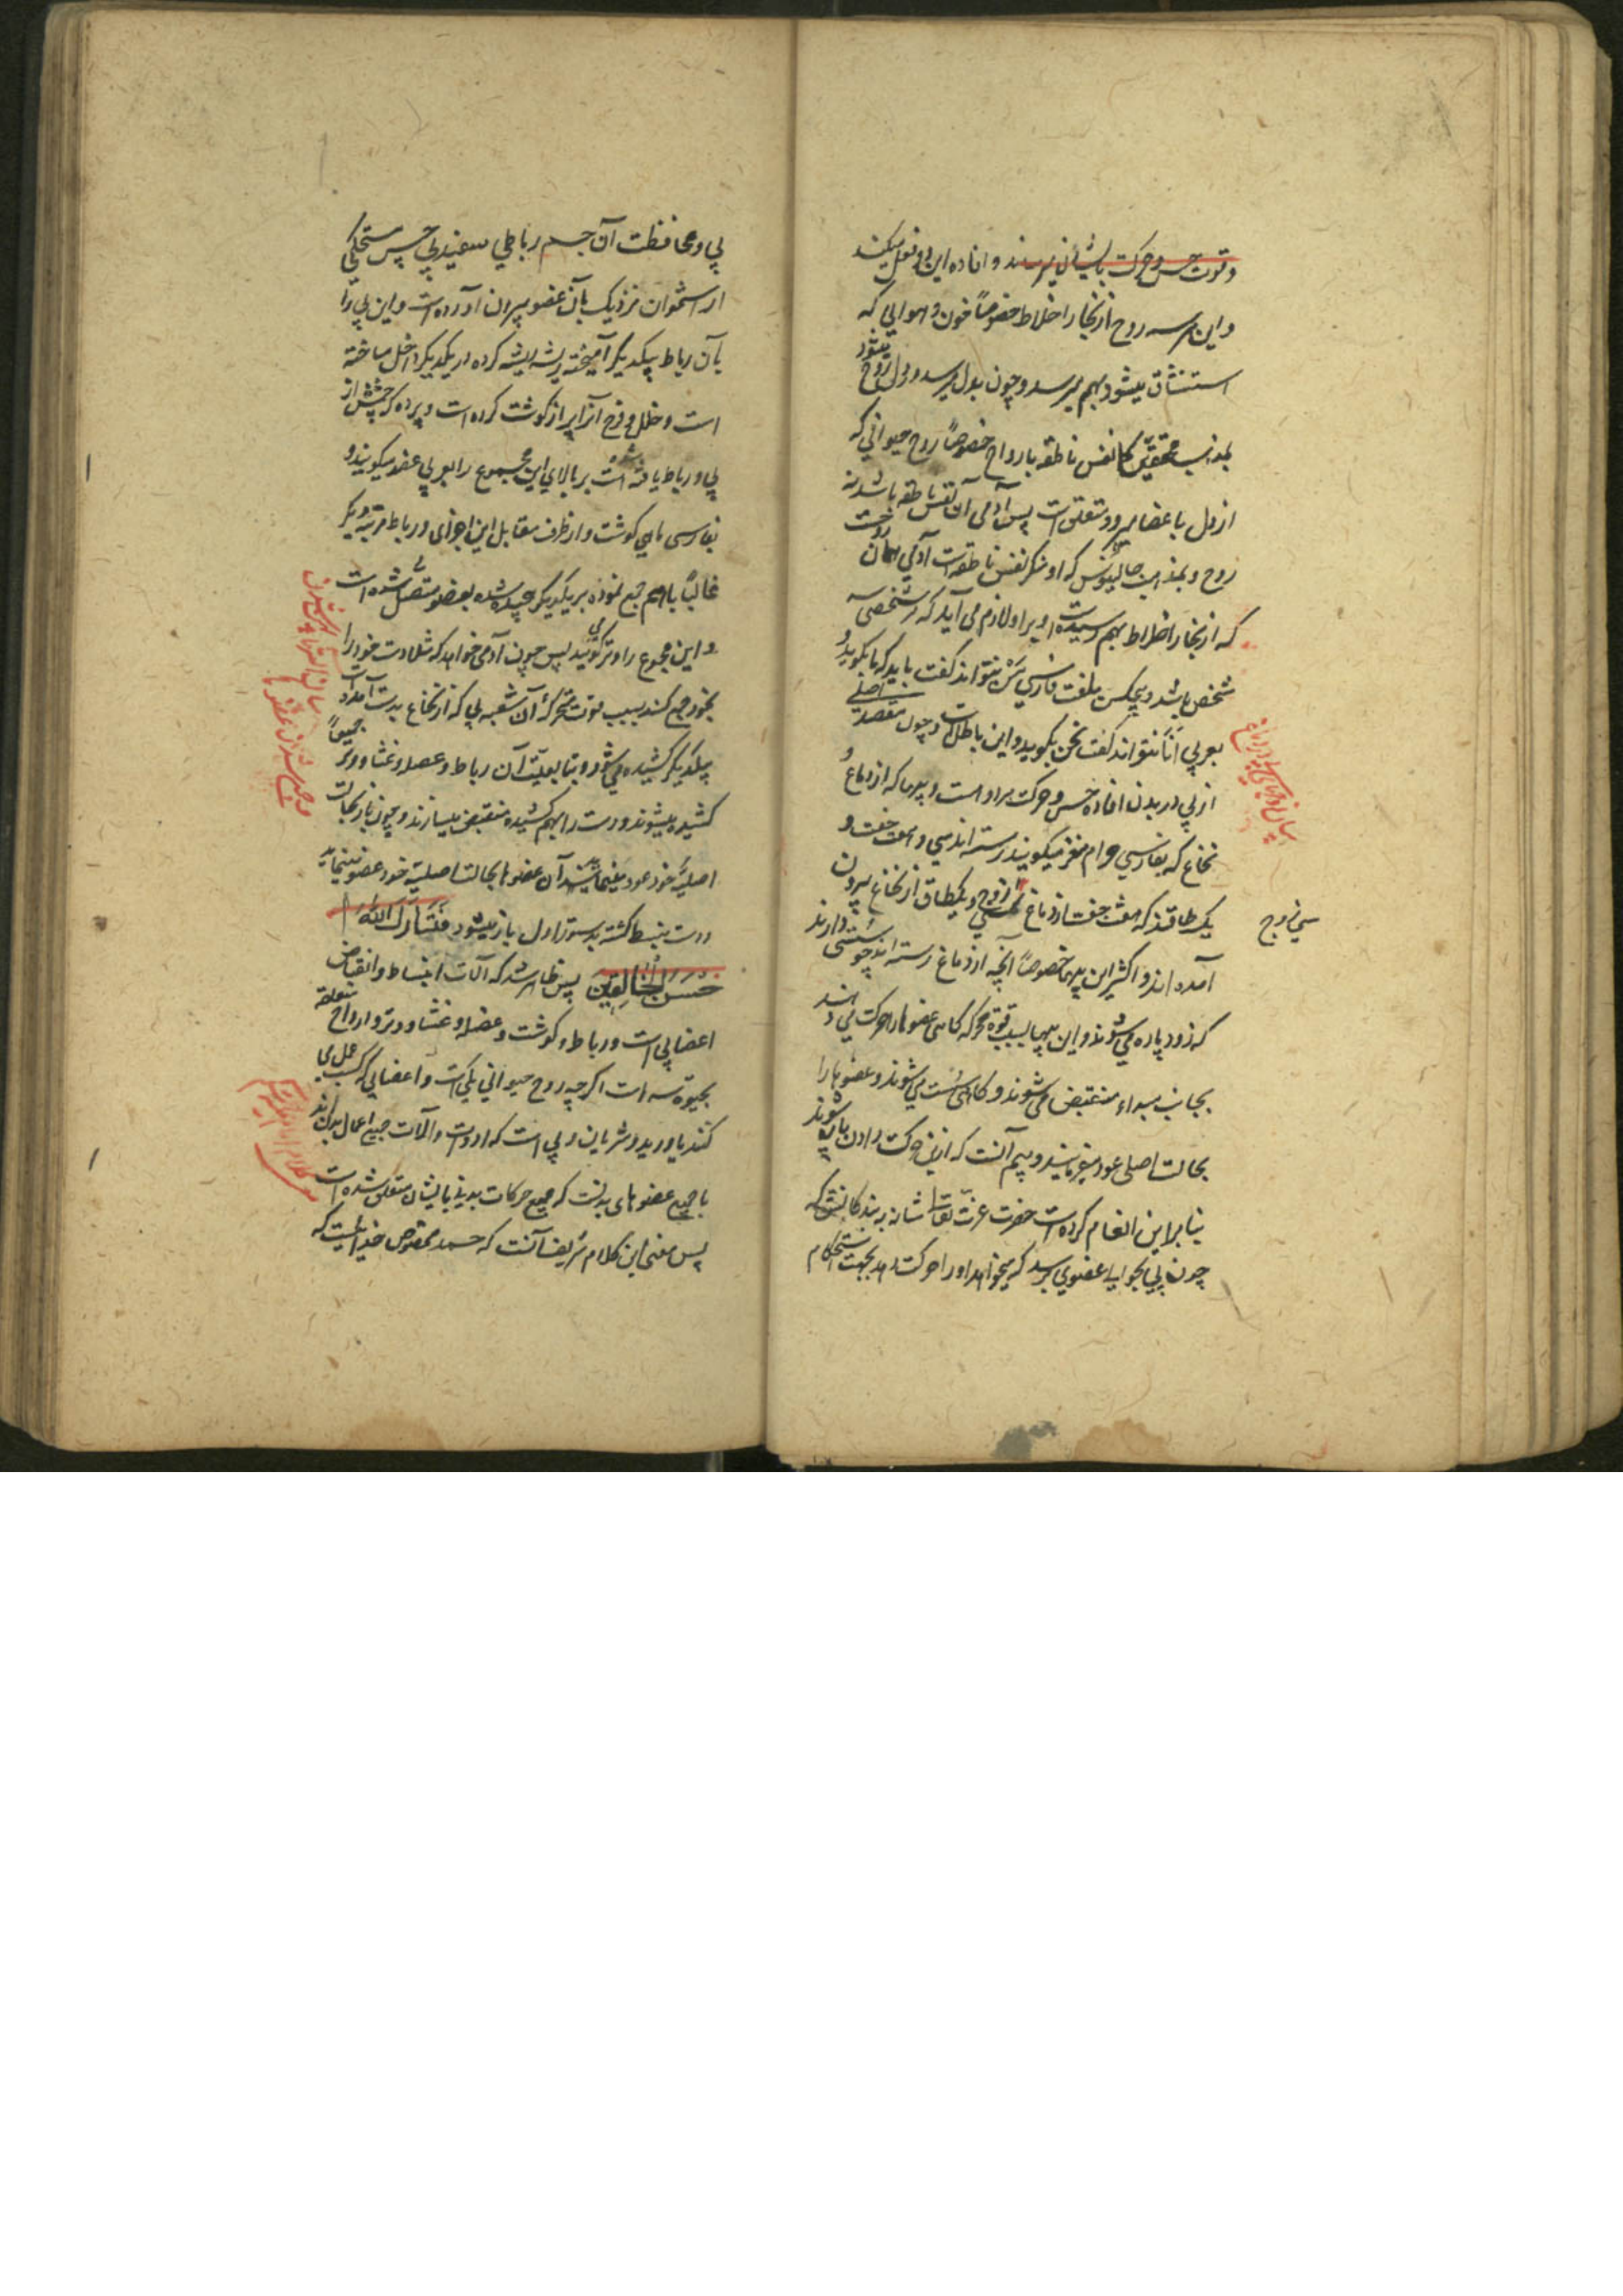 وقوت حس و حرکت باایشان میرسند و افاده این دو فعل میکنند
و این هر سه روح از بخار اخلاط خصوصاً خون و هوایی که
استنشاق میشود بهم میرسد و چون بدل میرسد و دل روح میشود
بمذهب محققین که نفس ناطقه بارواح خصوصاً روح حیوانی که
از دل باعضا میرود متعلق است پس آدمی آن نفس ناطقه باشد نه
روح و بمذهب جالینوس که او منکر نفس ناطقه است آدمی همان روحست
که از بخار اخلاط بهم رسیده است و برو لازم می آید که هر شخصی سه
شخص باشد و هیچکس بلغت فارسی من نتواند گفت باید که ما بگوید و
بعربی أنا نتواند گفت نحن بگوید و این باطل است و چون مقصد اصلی
از پی در بدن افاده حس و حرکت مراد است و پیها که از دماغ و
نخاع که بفارسی حرام مغز میکویند رسته اند سی و هفت جفت و
یک طاقند که هفت جفت از دماغ و سی زوج و یکطاق از نخاع بیرون
سی زوج
آمده اند و اکثر این پیها خصوصاً آنچه از دماغ رسته اند چو سستی دارند
که زود پاره می شوند و این پیها بسبب قوة محرکه گاهی عضوها را حرکت می دهند
بجانب مبداء منقبض می شوند و گاهی سست می شوند و عضوها را
بحالت اصلی عود میفرمایند و بیم آنست که ازین حرکت دادن پاره شوند
بنا براین انعام کرده است حضرت عزت تعالی شانه به بندگانش که
چون پی بحوالی عضوی برسد که میخواهد او را حرکت دهد بجهت استحکام
پی و محافظت آن جسم رباطی سفید پی چس مستحکمی
از استخوان نزدیک بآن عضو بیرون آورده است و این پی را
بآن رباط بیکدیگر آمیخته ریشه ریشه کرده در یکدیگر داخل ساخته
است و خلل و فرج آنرا پر از گوشت کرده است و پرده که جسمش از
پی و رباط یافته شده است بر بالای این مجموع را بعربی عضله میکویند و
بفارسی ماهی گوشت و از طرف مقابل این اجزای و رباط مرتبه دیگر
غالباً باهم جمع نموده بر یکدیگر چسپیده شده بعضو متصل شده است
و این مجموع را وتر می گویند پس چون آدمی خواهد که مثلا دست خود را
بخود جمع کند بسبب قوت محرکه آن شعبه پی که از نخاع بدست آمده است
بیکدیگر کشیده می شود و بتابعیت آن رباط و عضله و غشا و وتر جمیعاً
کشیده میشوند و دست را بهم کشیده منقبض میسازند و چون باز بحالت
اصلیه خود عود مینمایند آن عضوها بحالت اصلیه خود عضو مینماید
دست منبسط گشته بدستور اول باز میشود فَتَبَارَكَ اللّٰهُ أَ
حْسَنُ الْخَالِقِينَ پس ظاهر شد که آلات انبساط و انقباض
اعضا پی است و رباط و گوشت و عضله و غشا و وتر و ارواح متعلقه
بحیوة سه است اگر چه روح حیوانی یکی است و اعضایی که کسب عمل می
کنند یا ورید و شریان و پی است که ادوات و الآت جمیع اعمال بدن اند
یا جمیع عضوهای بدنست که جمیع حرکات بدنی بایشان متعلق شده است
پس معنی این کلام شریف آنست که حمد مخصوص خدائیست که